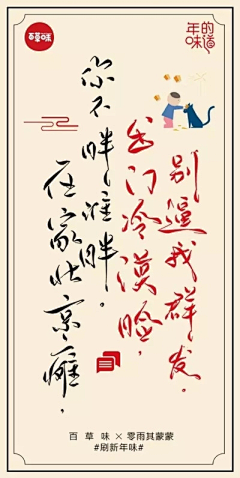 百草味
年的
味道
在家北京瘫，
你不胖谁胖。
出门冷漠脸，
别逼我群发。
百 草 味 × 零雨其蒙蒙
#刷新年味#